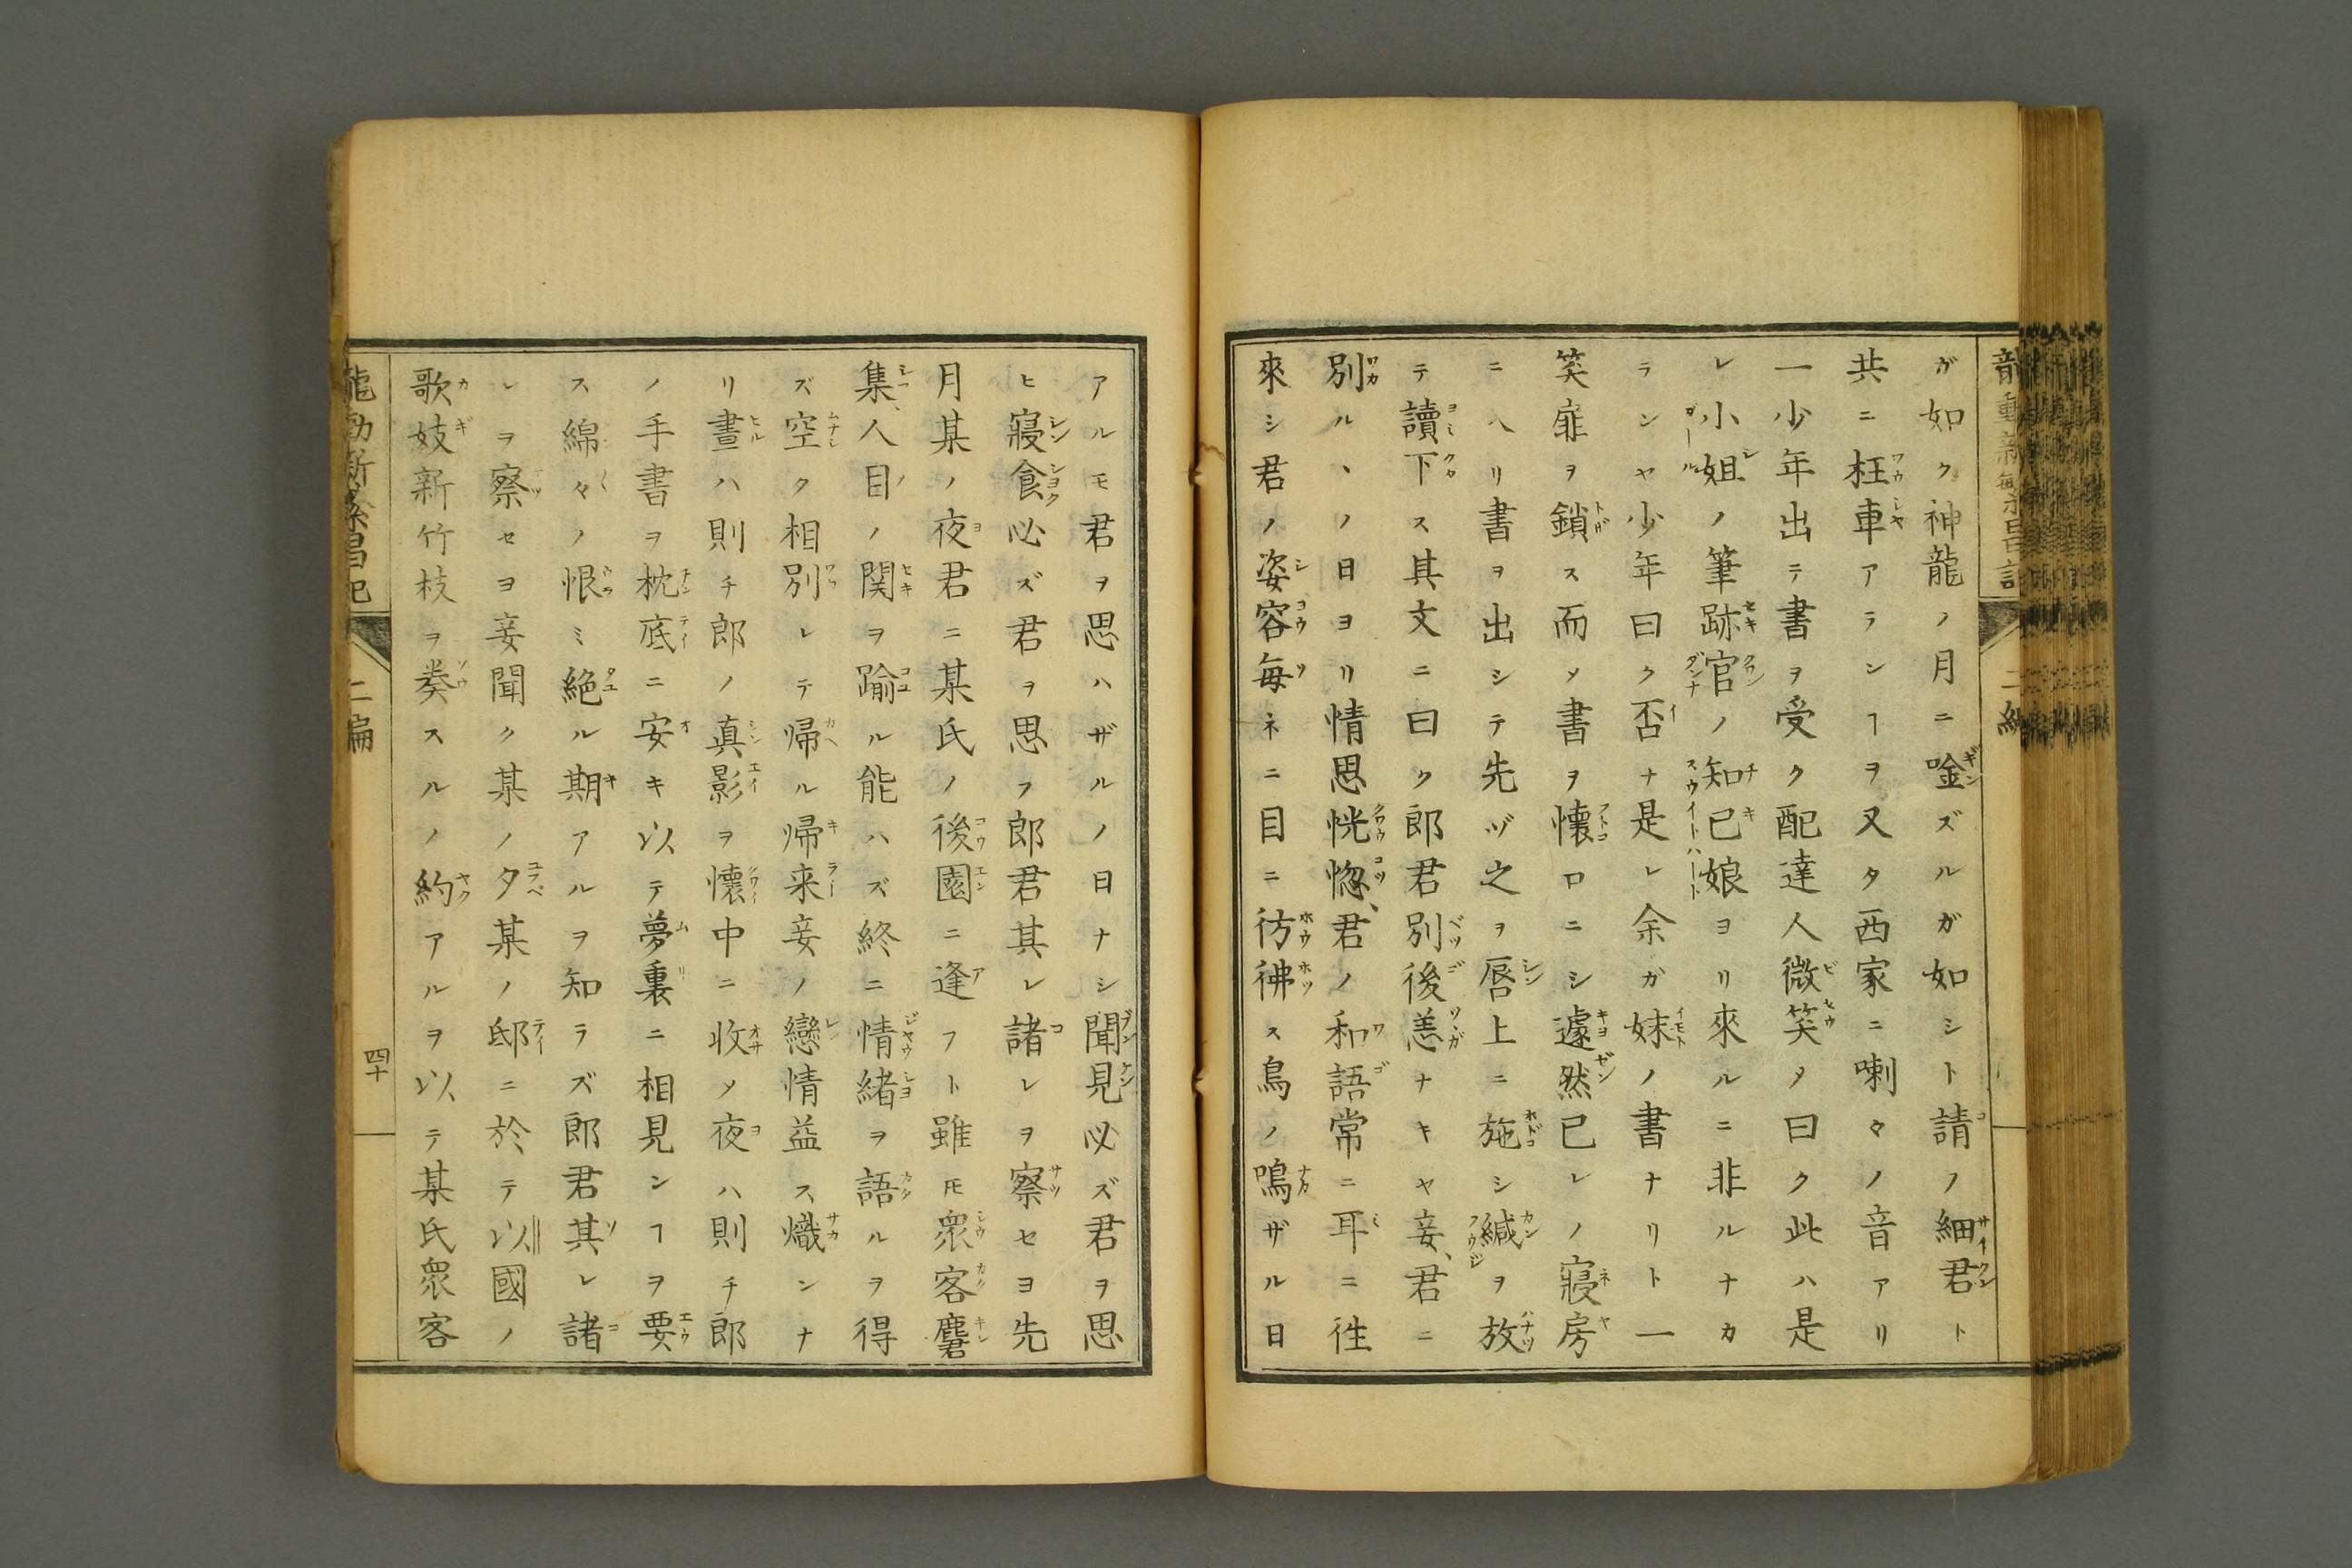 ガ如ク神龍ノ月ニ唫ズルガ如シト請ノ細君ト
共ニ枉車アランヿヲ又タ西家ニ喇々ノ音アリ
一少年出テ書ヲ受ク配達人微笑メ曰ク此ハ是
レ小姐ノ筆跡官ノ知己娘ヨリ來ルニ非ルナカ
ランヤ少年曰ク否ナ是レ余ガ妹ノ書ナリト一
笑扉ヲ鎖ス而メ書ヲ懐ロニシ遽然已レノ寝房
ニ入リ書ヲ出シテ先ヅ之ヲ唇上ニ施シ緘ヲ放
テ讀下ス其文ニ曰ク郎君別後恙ナキヤ妾、君ニ
別ル、ノ日ヨリ情思恍惚、君ノ和語常ニ耳ニ徃
來シ君ノ姿容毎ネニ目ニ彷彿ス鳥ノ鳴ザル日
アルモ君ヲ思ハザルノ日ナシ聞見必ズ君ヲ思
ヒ寢食必ズ君ヲ思フ郎君其レ諸レヲ察セヨ先
月某ノ夜君ニ某氏ノ後園ニ逢フト雖モ衆客麕
集、人目ノ関ヲ踰ル能ハズ終ニ情緒ヲ語ルヲ得
ズ空ク相別レテ帰ル帰来妾ノ戀情益ス熾ンナ
リ晝ハ則チ郎ノ真影ヲ懐中ニ收メ夜ハ則チ郎
ノ手書ヲ枕底ニ安キ以テ夢裏ニ相見ンヿヲ要
ス綿々ノ恨ミ絶ル期アルヲ知ラズ郎君其レ諸
レヲ察セヨ妾聞ク某ノ夕某ノ邸ニ於テ以國ノ
歌妓新竹枝ヲ奏スルノ約アルヲ以テ某氏衆客
二編
四十